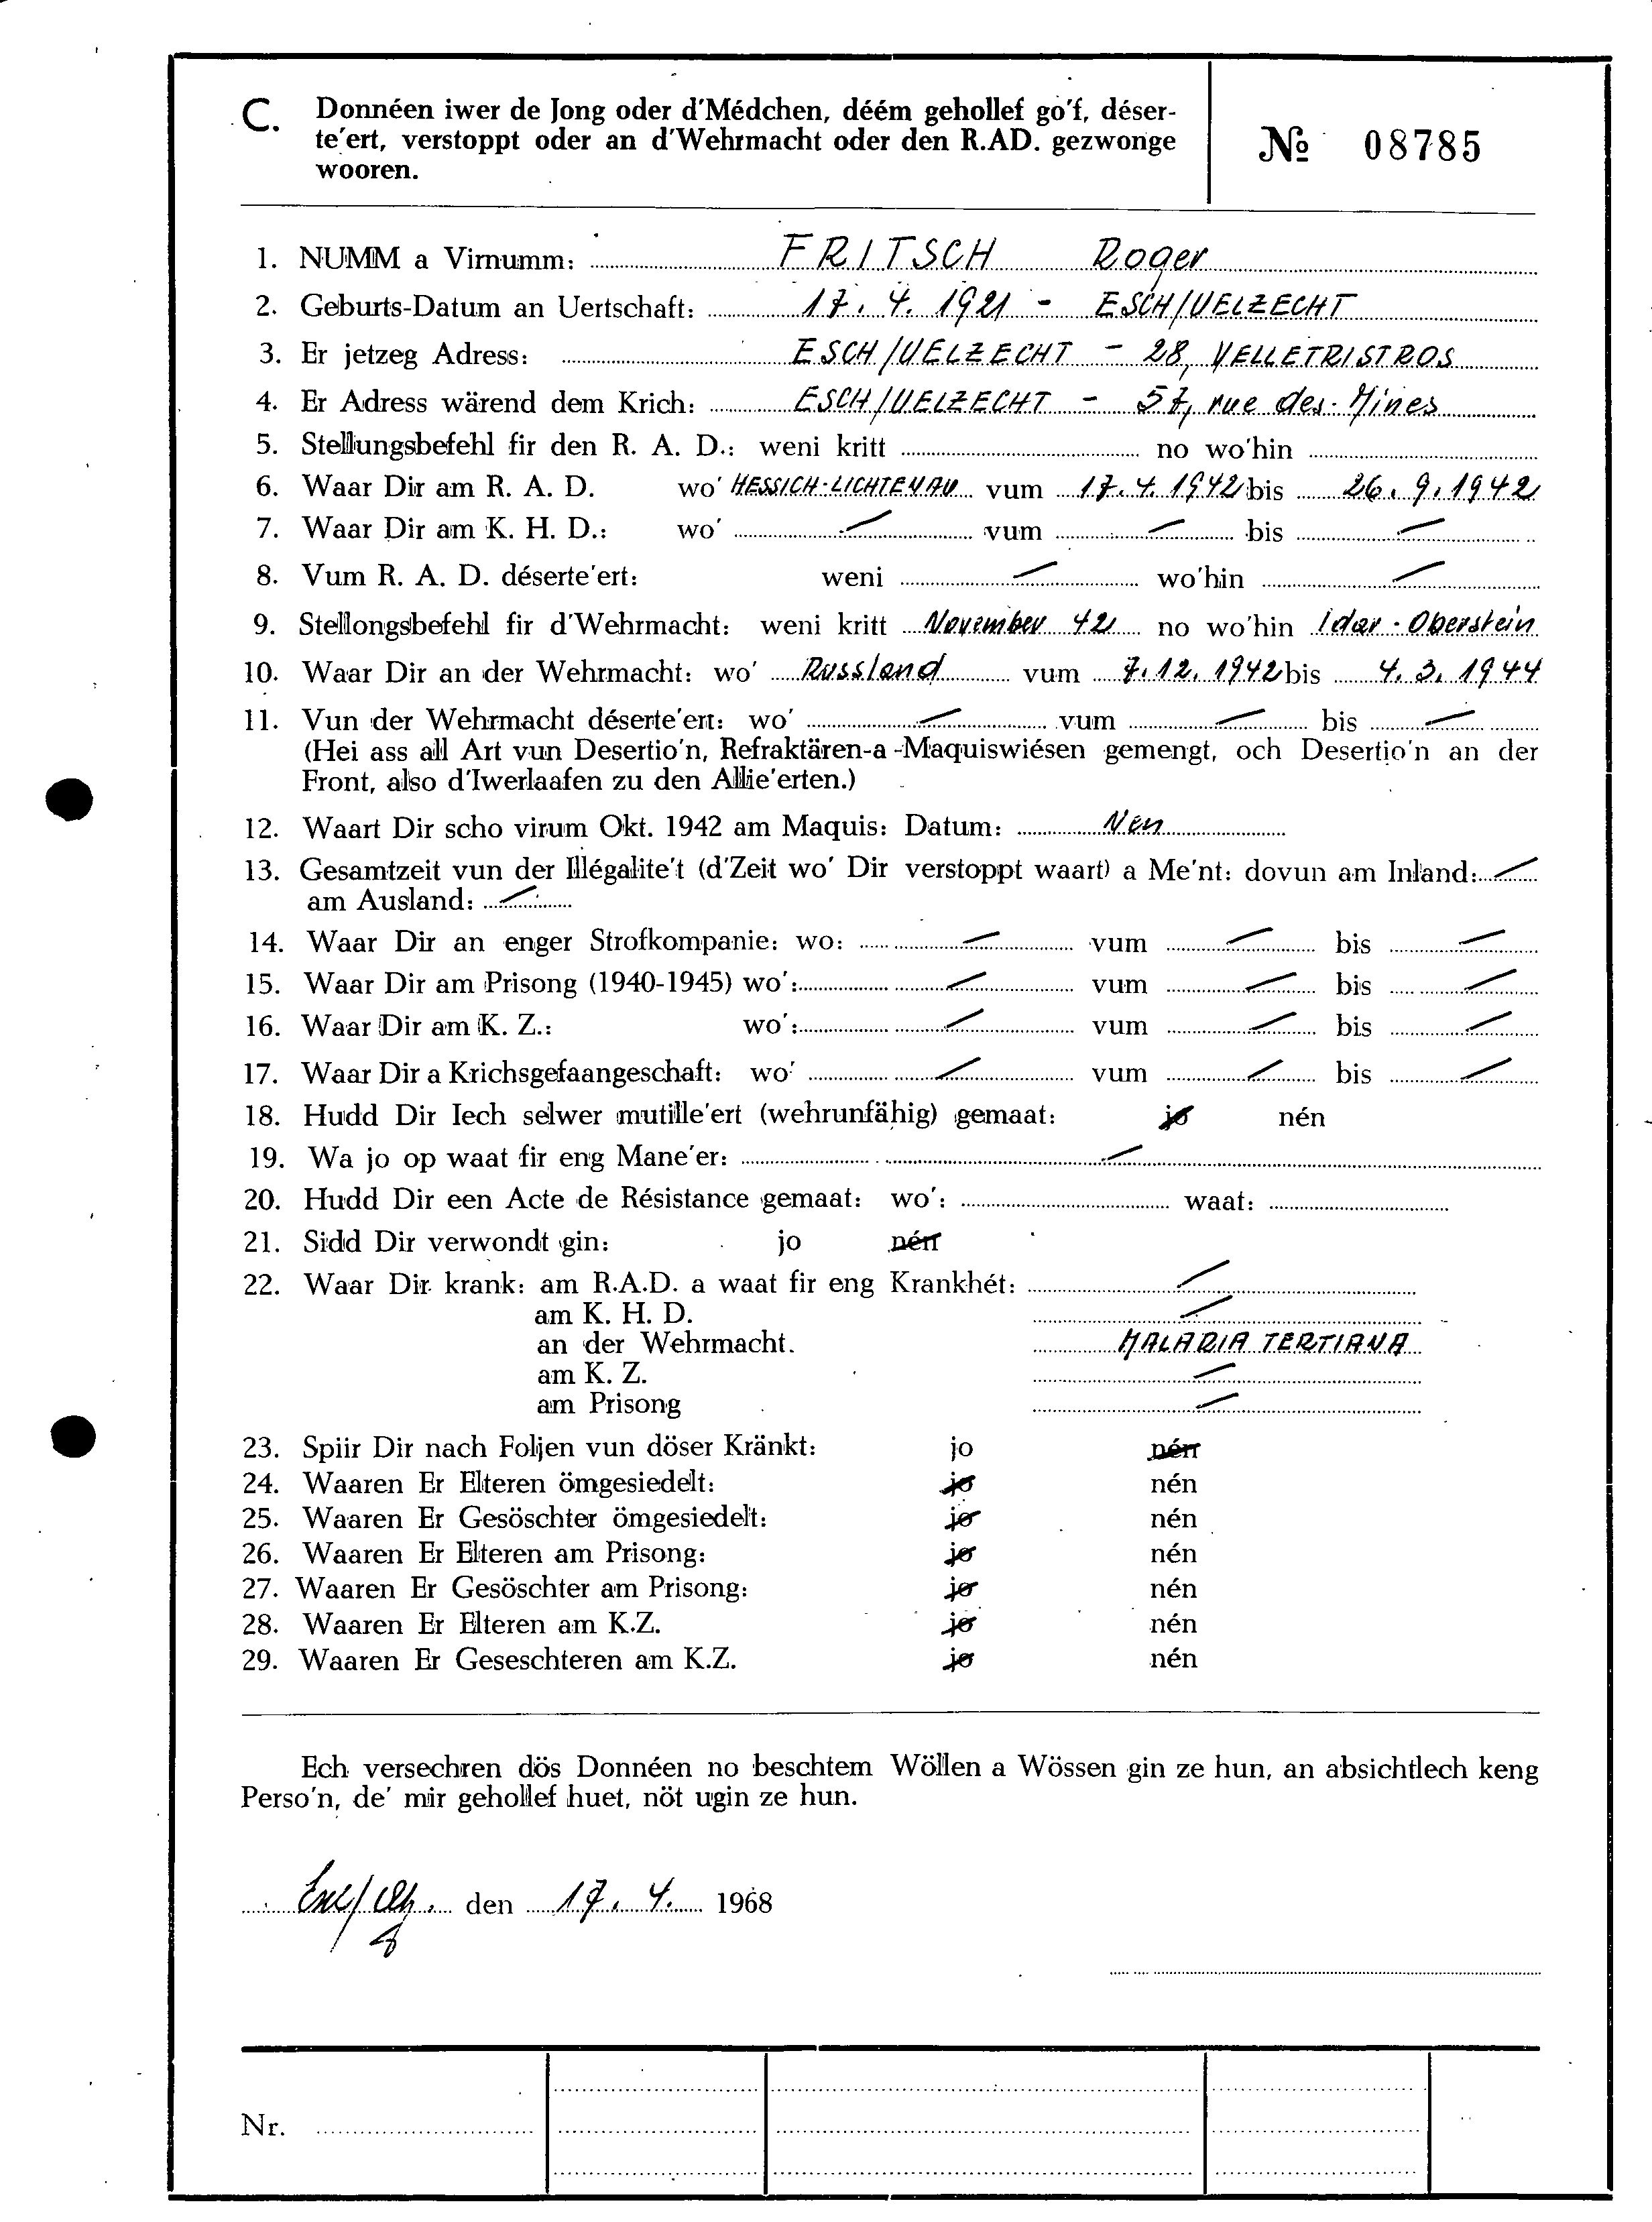 C. Donnéen iwer de Jong oder d'Médchen, déém gehollef go'f, déser-
te'ert, verstoppt oder an d'Wehrmacht oder den R.AD. gezwonge
wooren.
№ 08785
1. NUMM a Virnumm: FRITSCH Roger
2. Geburts-Datum an Uertschaft: 17. 4. 1921 - ESCH/UELZECHT
3. Er jetzeg Adress: ESCH/UELZECHT - 28, VELLETRISTROS
4. Er Adress wärend dem Krich: ESCH/UELZECHT - 57, rue des Mines
5. Stellungsbefehl fir den R. A. D.: weni kritt no wo'hin
6. Waar Dir am R. A. D. wo' HESSICH-LICHTENAU vum 17. 4. 1942 bis 26. 9. 1942
7. Waar Dir am K. H. D.: wo' — vum — bis —
8. Vum R. A. D. déserte'ert: weni — wo'hin —
9. Stellongsbefehl fir d'Wehrmacht: weni kritt November 42 no wo'hin Idar-Oberstein
10. Waar Dir an der Wehrmacht: wo' Russland vum 7. 12. 1942 bis 4. 3. 1944
11. Vun der Wehrmacht déserte'ert: wo' — vum — bis —
(Hei ass all Art vun Desertio'n, Refraktären-a-Maquiswiésen gemengt, och Desertio'n an der
Front, also d'Iwerlaafen zu den Allie'erten.)
12. Waart Dir scho virum Okt. 1942 am Maquis: Datum: Nen
13. Gesamtzeit vun der Illégalite't (d'Zeit wo' Dir verstoppt waart) a Me'nt: dovun am Inland: —
am Ausland: —
14. Waar Dir an enger Strofkompanie: wo: — vum — bis —
15. Waar Dir am Prisong (1940-1945) wo': — vum — bis —
16. Waar Dir am K. Z.: wo': — vum — bis —
17. Waar Dir a Krichsgefaangeschaft: wo' — vum — bis —
18. Hudd Dir Iech selwer mutille'ert (wehrunfähig) gemaat: jo nén
19. Wa jo op waat fir eng Mane'er: —
20. Hudd Dir een Acte de Résistance gemaat: wo': waat:
21. Sidd Dir verwondt gin: jo nén
22. Waar Dir krank: am R.A.D. a waat fir eng Krankhét: —
am K. H. D. —
an der Wehrmacht. MALARIA TERTIANA
am K. Z. —
am Prisong —
23. Spiir Dir nach Foljen vun döser Kränkt: jo nén
24. Waaren Er Elteren ömgesiedelt: jo nén
25. Waaren Er Gesöschter ömgesiedelt: jo nén
26. Waaren Er Elteren am Prisong: jo nén
27. Waaren Er Gesöschter am Prisong: jo nén
28. Waaren Er Elteren am K.Z. jo nén
29. Waaren Er Geseschteren am K.Z. jo nén
Ech versechren dös Donnéen no beschtem Wöllen a Wössen gin ze hun, an absichtlech keng
Perso'n, de' mir gehollef huet, nöt ugin ze hun.
den 17. 4. 1968
Nr.